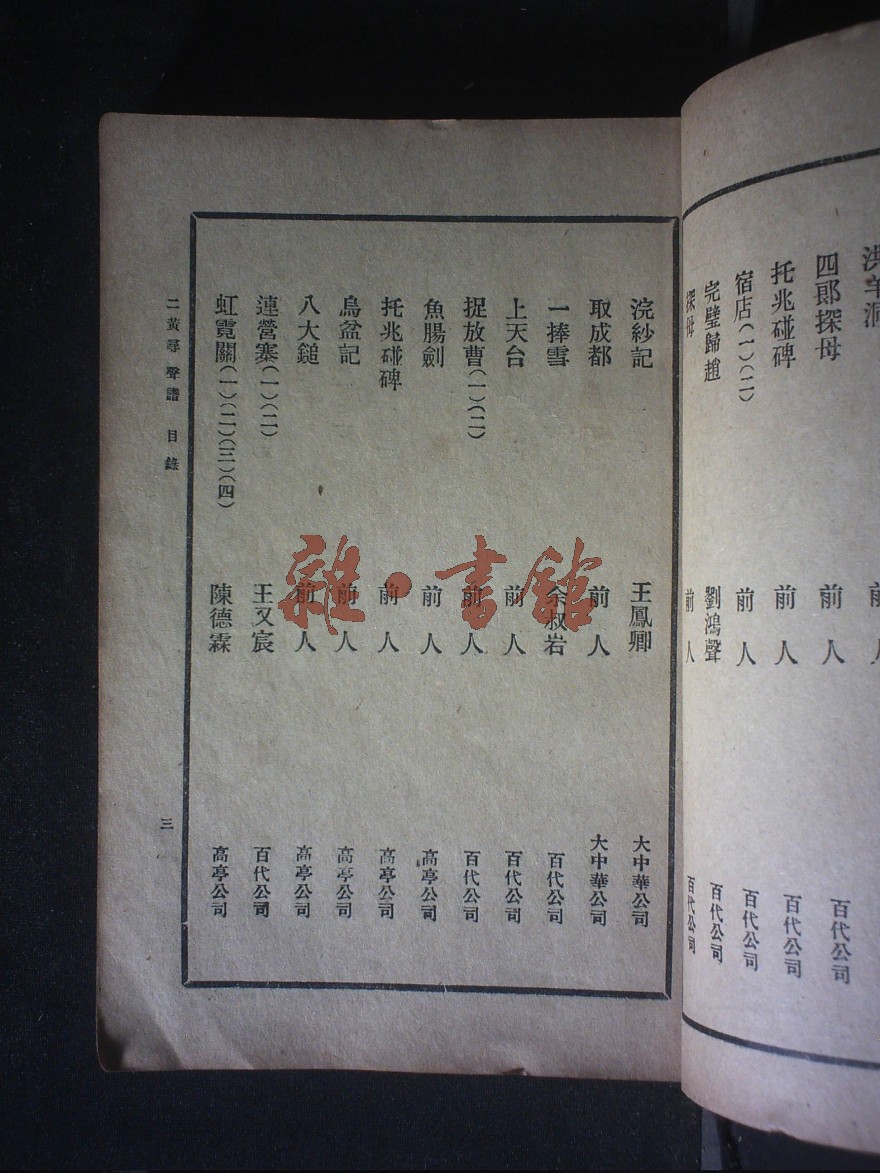 四郞探母 前人 百代公司
托兆碰碑 前人 百代公司
宿店(一)(二) 前人 百代公司
完璧歸趙 劉鴻聲 百代公司
探母 前人 百代公司
浣紗記 王鳳卿 大中華公司
取成都 前人 大中華公司
一捧雪 余叔岩 百代公司
上天台 前人 百代公司
捉放曹(一)(二) 前人 百代公司
魚腸劍 前人 高亭公司
托兆碰碑 前人 高亭公司
烏盆記 前人 高亭公司
八大鎚 前人 高亭公司
連營寨(一)(二) 王又宸 百代公司
虹霓關(一)(二)(三)(四) 陳德霖 高亭公司
二黃尋聲譜 目錄 三
雜·書館